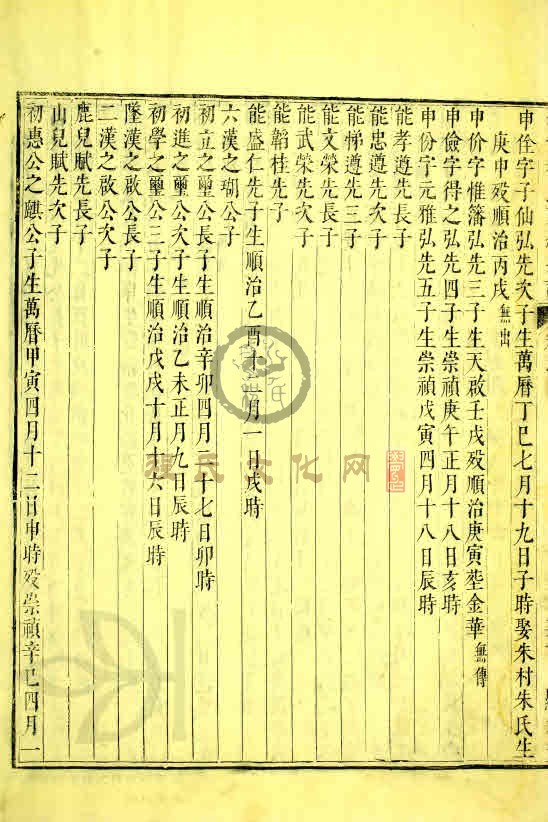 申佺字子仙弘先次子生萬曆丁巳七月十九日子時娶朱村朱氏生
庚申歿順治丙戌無出
申价字惟藩弘先三子生天啟壬戌歿順治庚寅塟金華無傳
申儉字得之弘先四子生崇禎庚午正月十八日亥時
申份字元雅弘先五子生崇禎戊寅四月十八日辰時
能孝遵先長子
能忠遵先次子
能悌遵先三子
能文榮先長子
能武榮先次子
能韜桂先子
能盛仁先子生順治乙酉十二月一日戌時
六漢之瑚公子
初立之璽公長子生順治辛卯四月二十七日卯時
初進之璽公次子生順治乙未正月九日辰時
初學之璽公三子生順治戊戌十月十六日辰時
墜漢之啟公長子
二漢之啟公次子
鹿兒賦先長子
山兒賦先次子
初惠公之麒公子生萬曆甲寅四月十二日申時歿崇禎辛巳四月一
程氏文化网